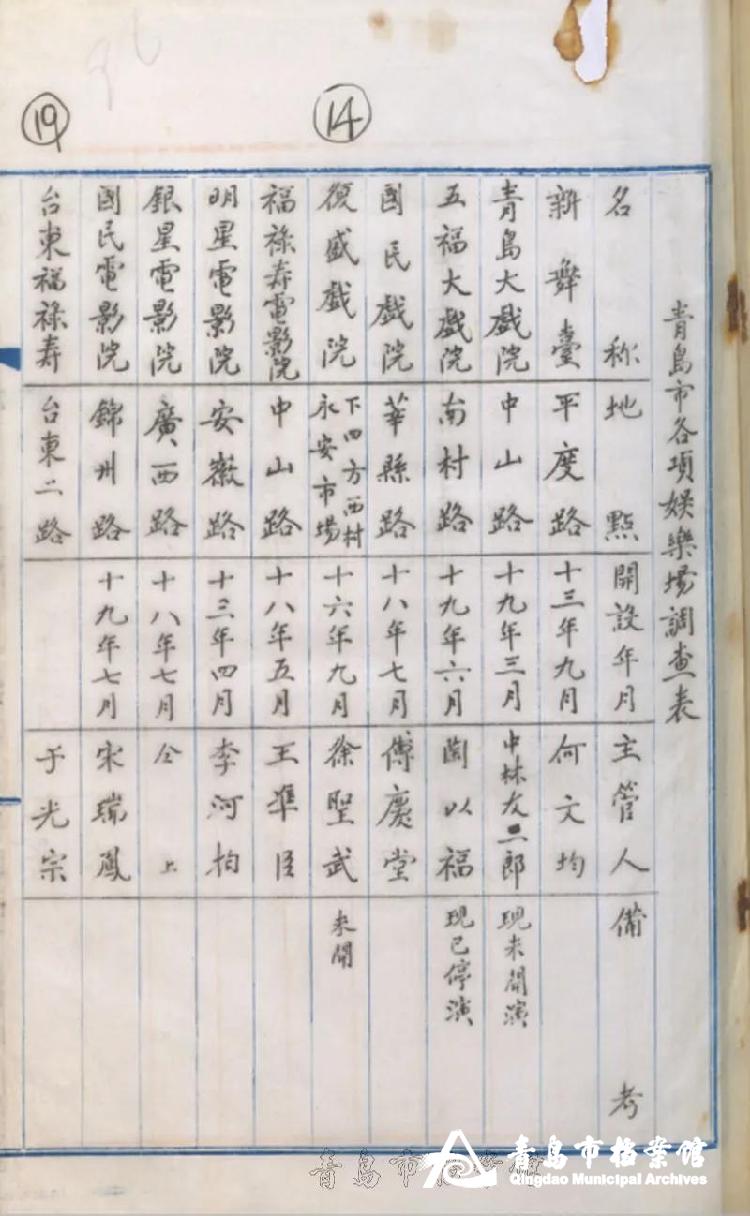 青島市各項娛樂場調查表
名称 地點 開設年月 主管人 備考
新舞臺 平度路 十三年九月 何文均
青島大戲院 中山路 十九年三月 中林友二郎 現未開演
五福大戲院 南村路 十九年六月 蘭以福 現已停演
國民戲院 華縣路 十八年七月 傅慶堂
14
復盛戲院 下四方西村永安市場 十六年九月 徐聖武 未開
福祿壽電影院 中山路 十八年五月 王準臣
明星電影院 安徽路 十三年四月 李河
銀星電影院 廣西路 十八年七月 仝上
國民電影院 錦州路 十九年七月 宋瑞鳳
19
台東福祿寿 台東二路 于光宗
青島市
青島市档案館
Qingdao Municipal Archives